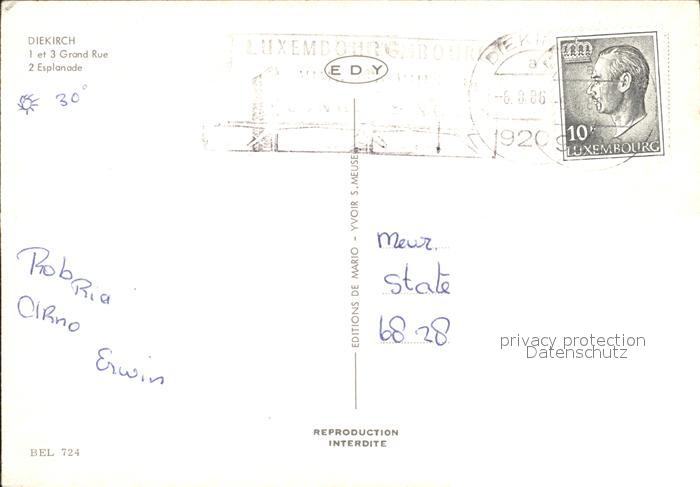 DIEKIRCH
1 et 3 Grand Rue
2 Esplanade
30°
LUXEMBOURG
EDY
DIEKIRCH
-6.8.86
9209
10F
LUXEMBOURG
EDITIONS DE MARIO - YVOIR S. MEUSE
Rob
Ria
Arno
Erwin
Meur.
State
68 28
privacy protection
Datenschutz
REPRODUCTION
INTERDITE
BEL 724